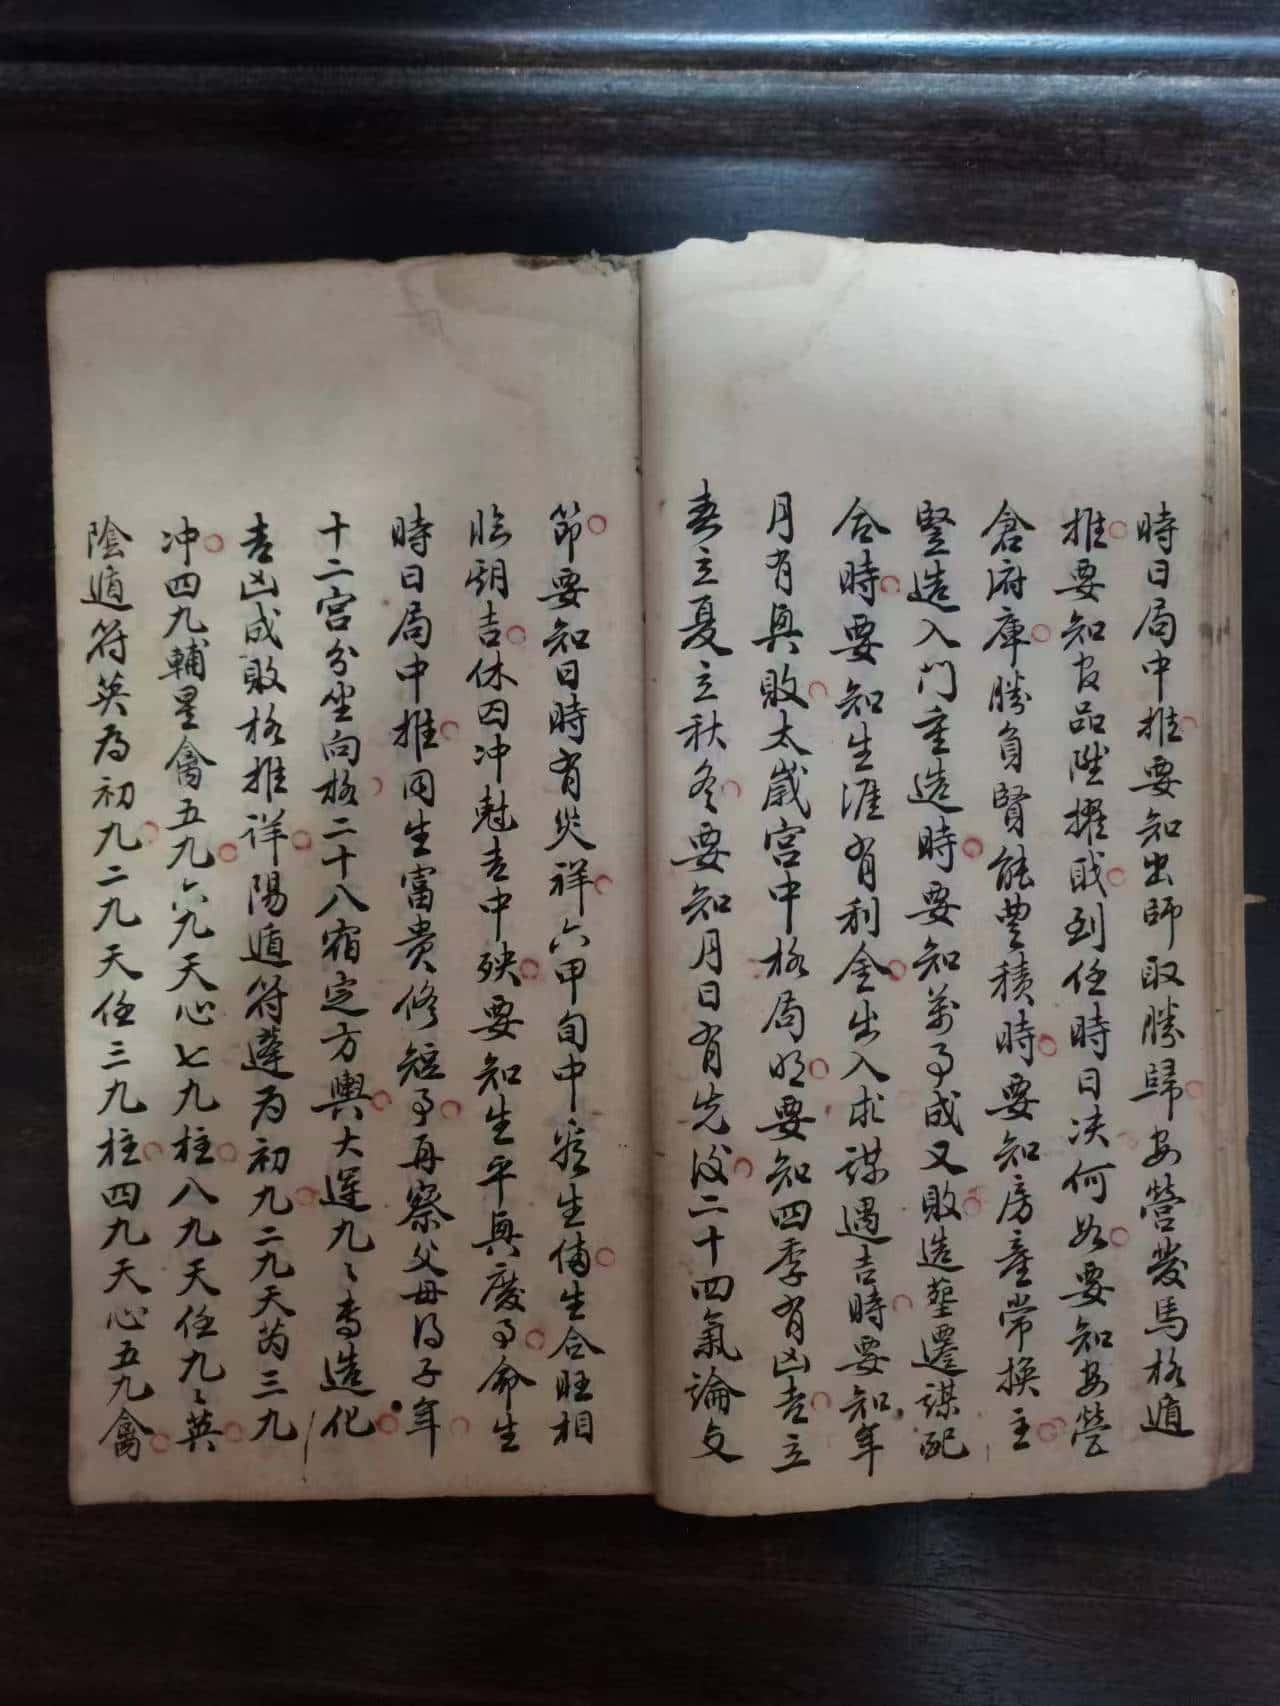 時日局中推要知出師取勝歸安營發馬格遁
推要知官品陞擢戝到任時日决何如要知安營
倉府庫勝負賢能豊積時要知房產常換主
豎造入門重造時要知萬事成又敗造塟遷謀配
合時要知生涯有利金出入求謀遇吉時要知年
月有興敗太歲宮中格局明要知四季有凶吉立
春立夏立秋冬要知月日有先後二十四氣論交
節要知日時有災祥六甲旬中定生備生合旺相
臨朝吉休囚冲尅吉中殃要知生平興廢事命生
時日局中推用生富貴修短事再察父母得子年
十二宮分坐向格二十八宿定方輿大運九〻專造化
吉凶成敗格推詳陽遁符蓬为初九二九天芮三九
冲四九輔星禽五九六九天心七九柱八九天任九〻英
陰遁符英为初九二九天任三九柱四九天心五九禽